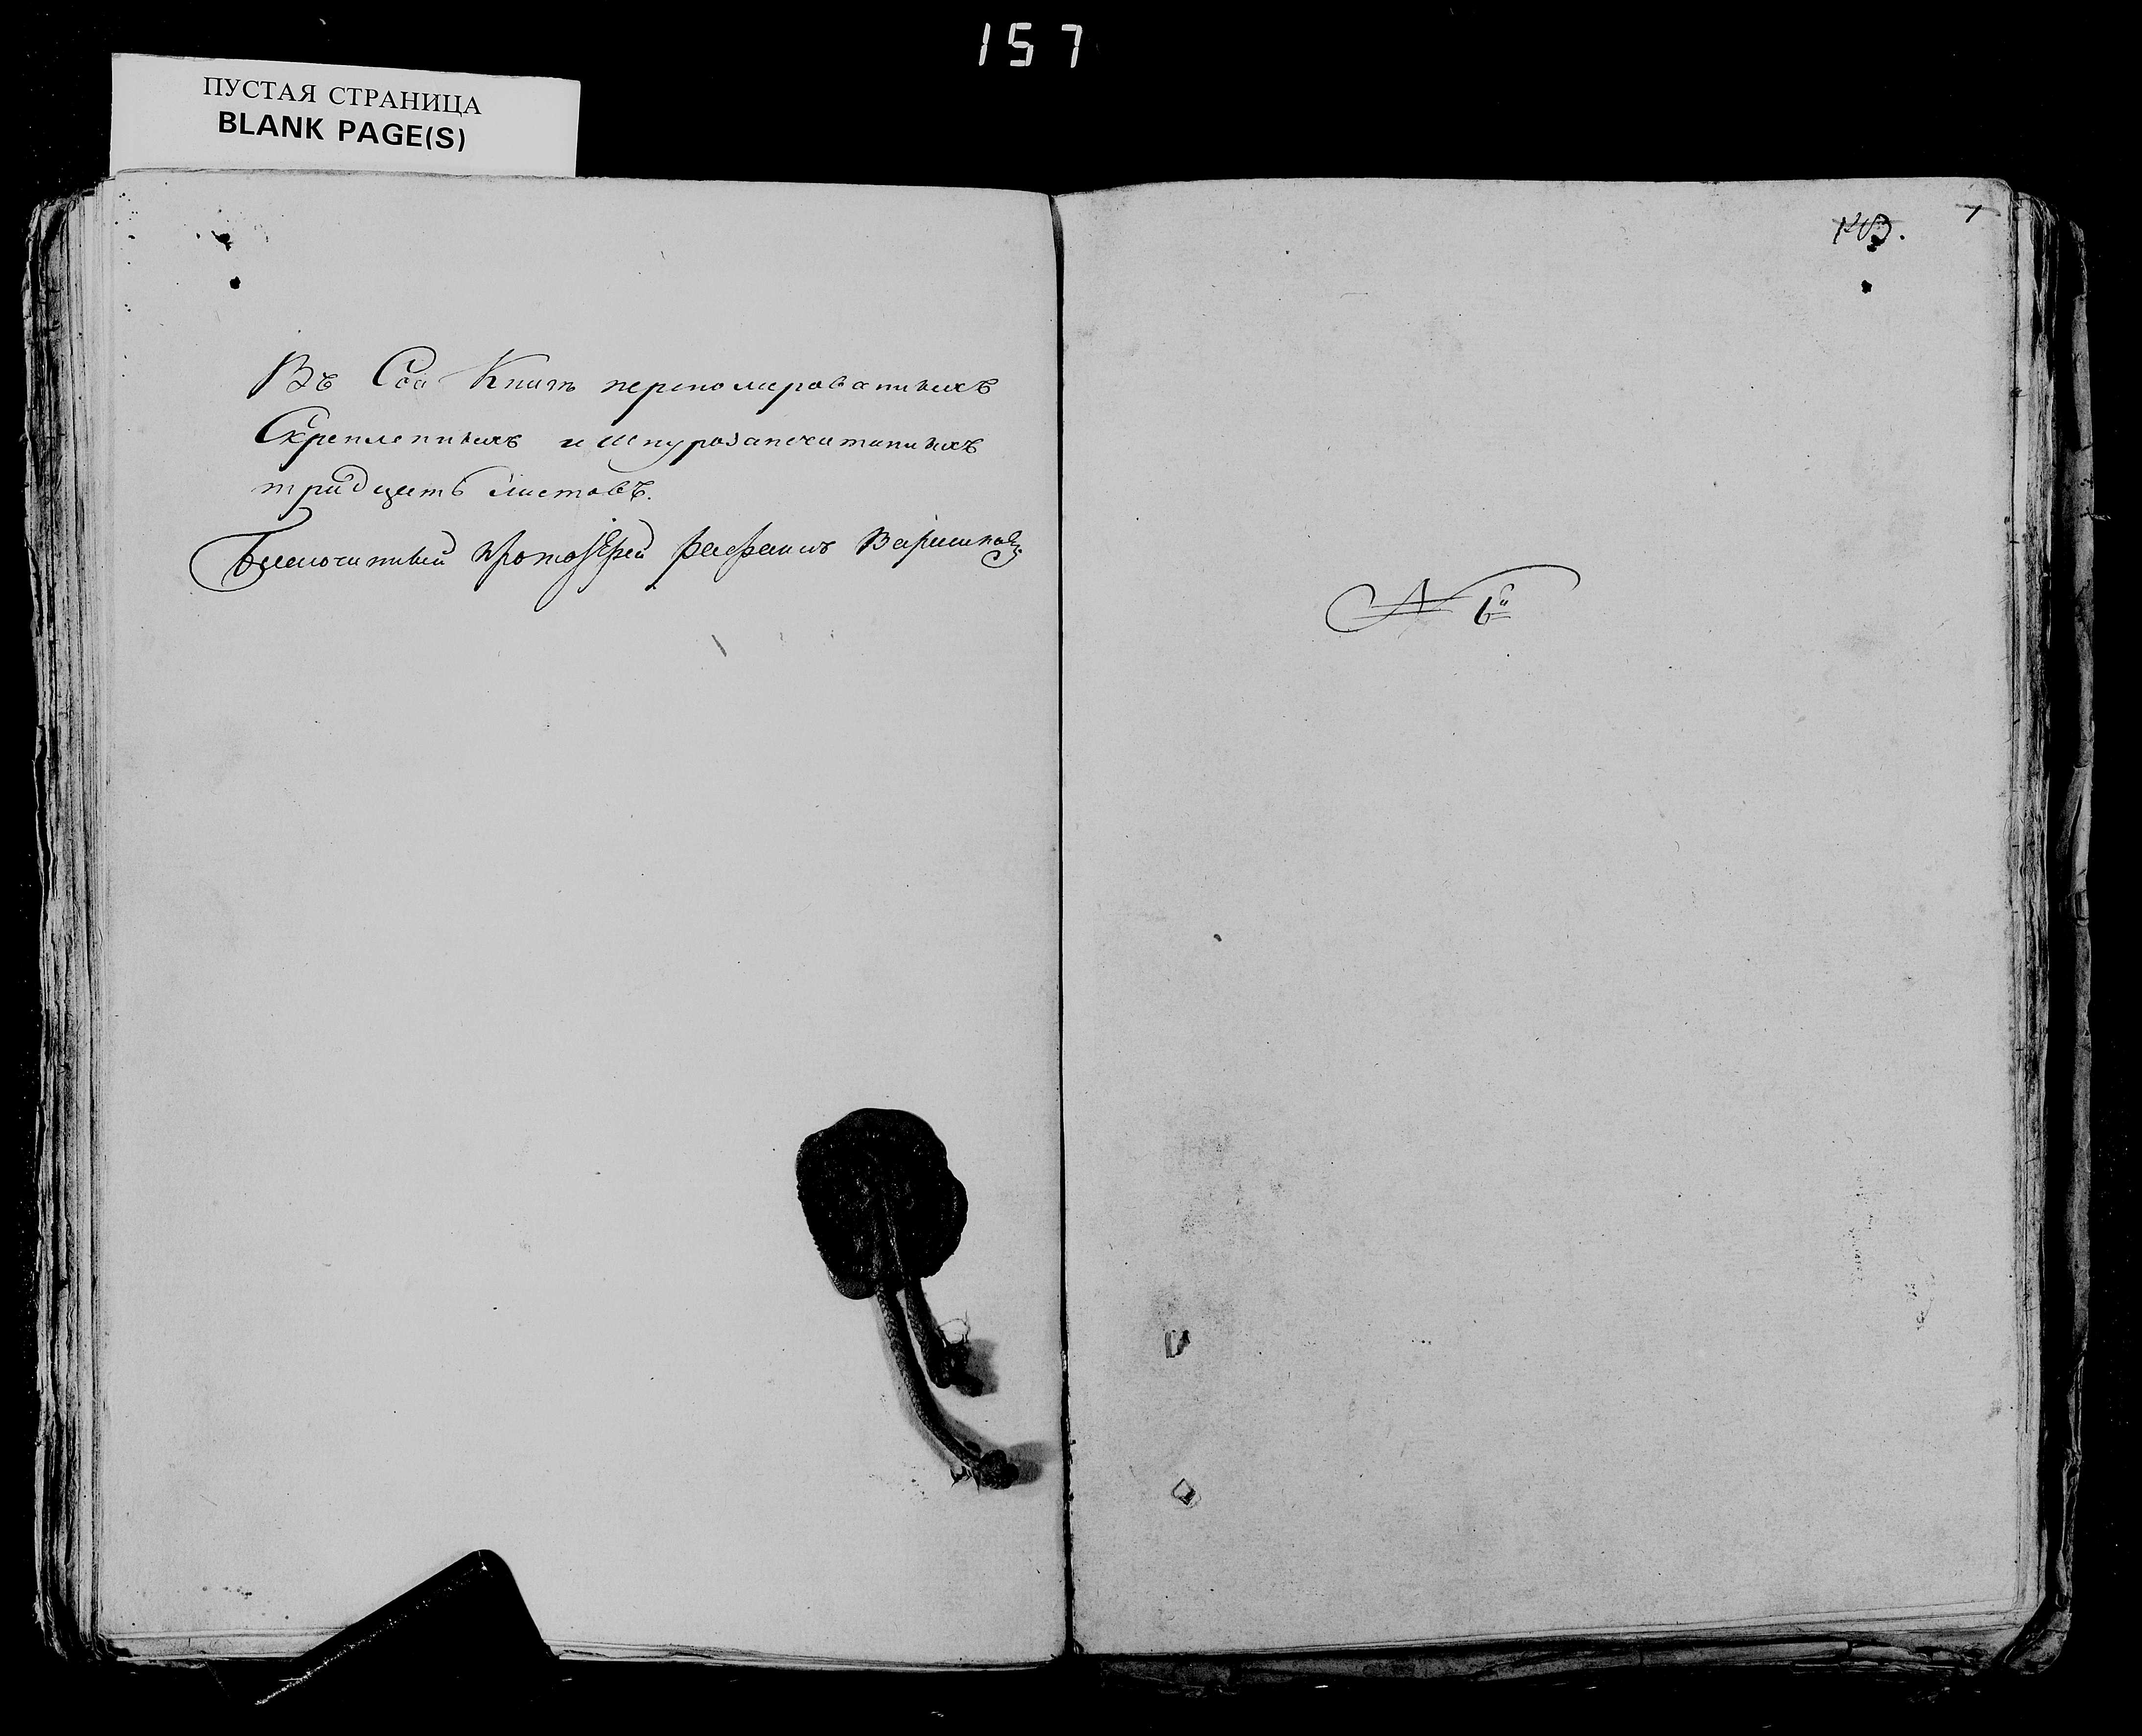 157
ПУСТАЯ СТРАНИЦА
BLANK PAGE(S)
Въ Сей Книгѣ переномерованныхъ
Скрепленныхъ и шнурозапечатанныхъ
тридцать листовъ.
Благочинный Протоіерей
1
№ 6й